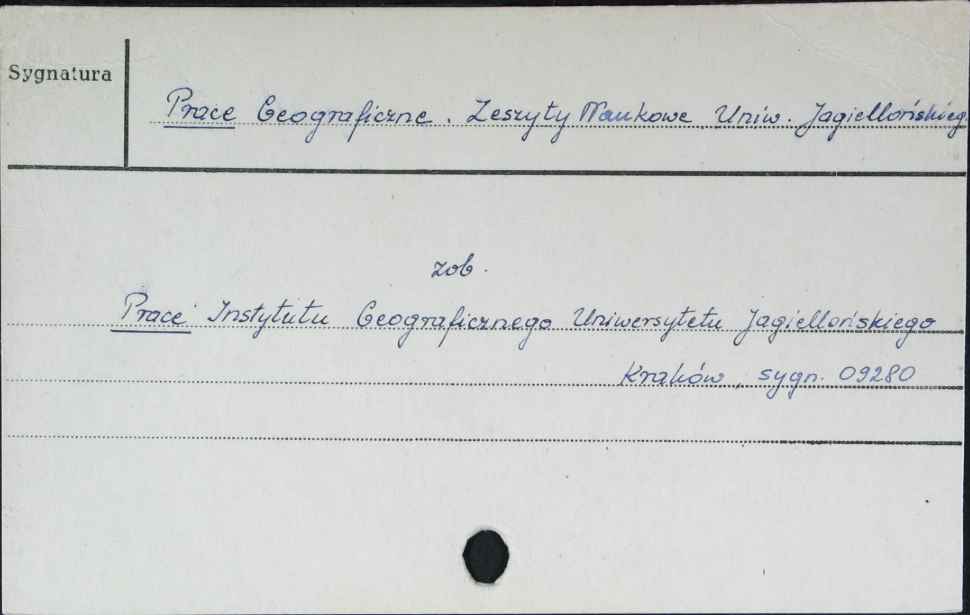 Sygnatura
Prace Geograficzne. Zeszyty Naukowe Uniw. Jagiellońskieg
zob.
Prace Instytutu Geograficznego Uniwersytetu Jagiellońskiego
Kraków, sygn. 09280